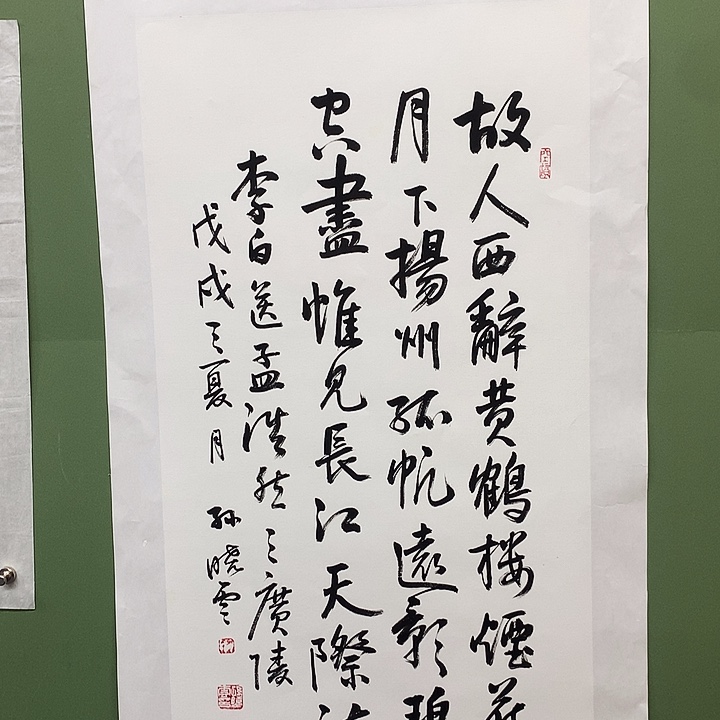 故人西辭黄鶴楼煙花
月下揚州孤帆遠影碧
空盡惟見長江天際流
李白送孟浩然之廣陵
戊戌之夏月 孫曉雲